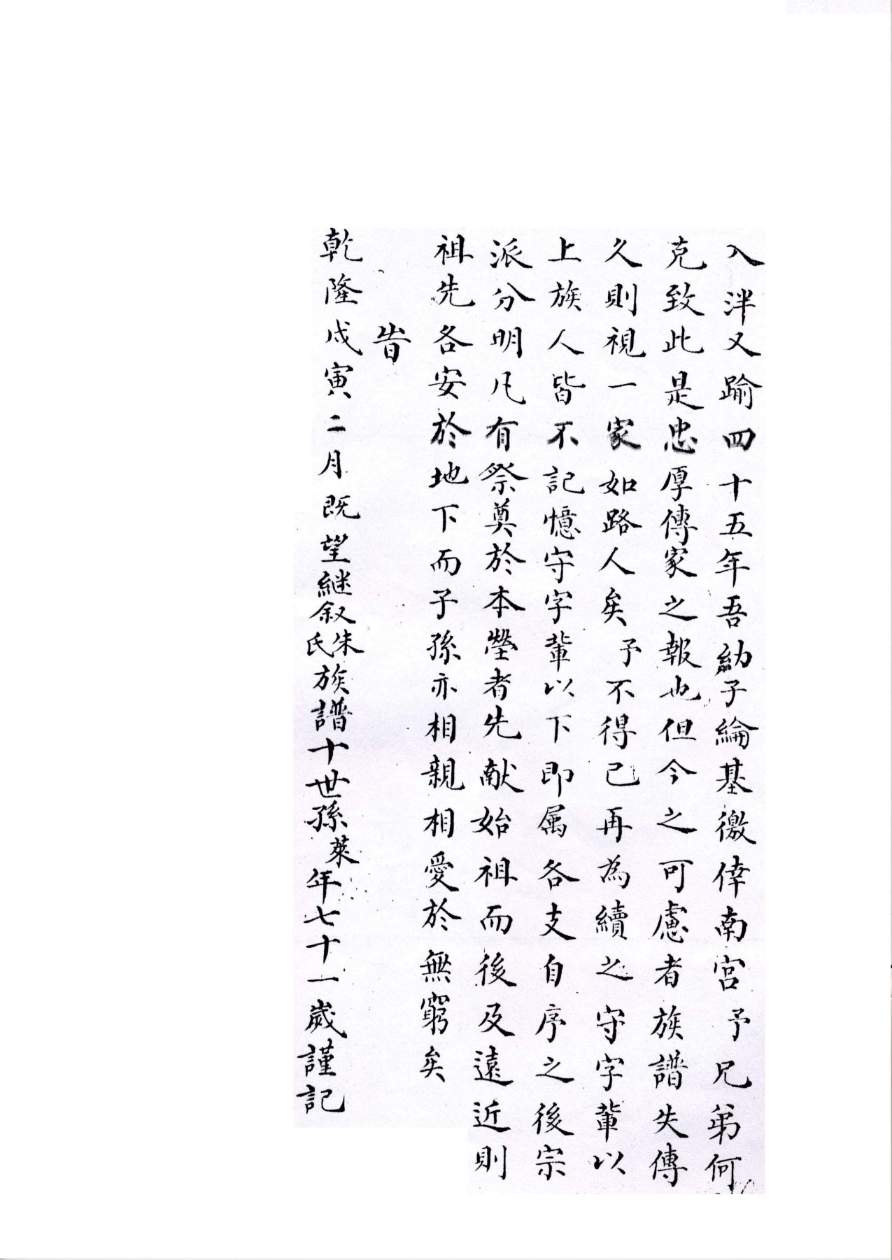 入泮又踰四十五年吾幼子綸基徼倖南宮予兄弟何
克致此是忠厚傳家之報也但今之可慮者族譜失傳
久則視一家如路人矣予不得已再為續之守字輩以
上族人皆不記憶守字輩以下即属各支自序之後宗
派分明凡有祭奠於本塋者先献始祖而後及遠近則
祖先各安於地下而子孫亦相親相愛於無窮矣
旹
乾隆戊寅二月既望継叙朱氏族譜十世孫萊年七十一歲謹記